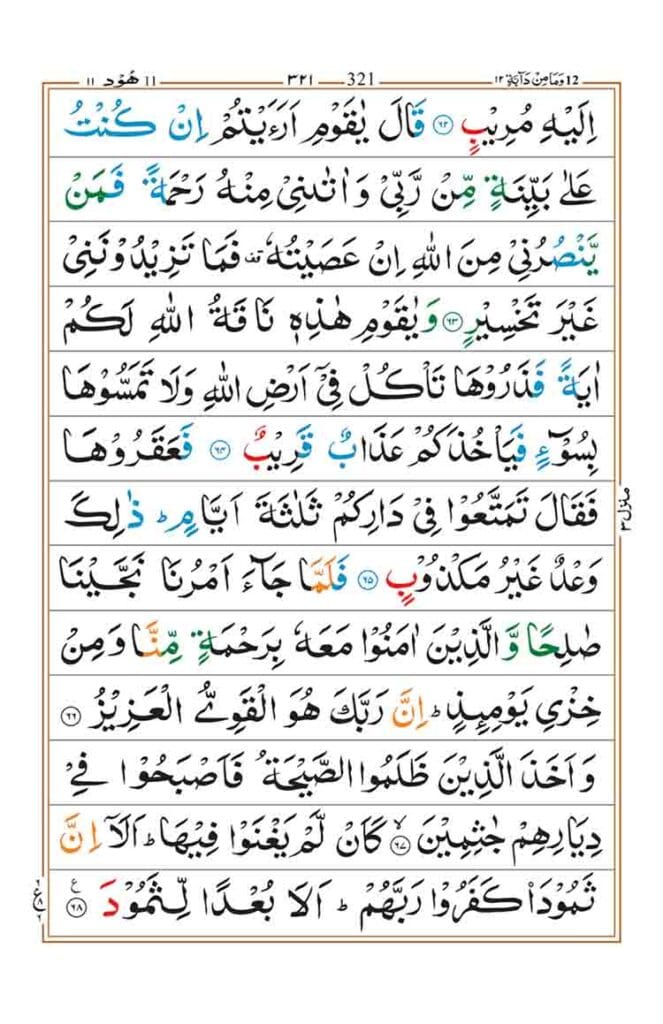 ١١ هُوْد ١١ ٣٢١ 321 12 وَمَا مِنْ دَآبَّةٍ ١٢
اِلَيْهِ مُرِيْبٍ ﴿٦٢﴾ قَالَ يٰقَوْمِ اَرَءَيْتُمْ اِنْ كُنْتُ
عَلٰى بَيِّنَةٍ مِّنْ رَّبِّيْ وَاٰتٰىنِيْ مِنْهُ رَحْمَةً فَمَنْ
يَّنْصُرُنِيْ مِنَ اللّٰهِ اِنْ عَصَيْتُهٗ قف فَمَا تَزِيْدُوْنَنِيْ
غَيْرَ تَخْسِيْرٍ ﴿٦٣﴾ وَيٰقَوْمِ هٰذِهٖ نَاقَةُ اللّٰهِ لَكُمْ
اٰيَةً فَذَرُوْهَا تَاْكُلْ فِيْۤ اَرْضِ اللّٰهِ وَلَا تَمَسُّوْهَا
بِسُوْٓءٍ فَيَاْخُذَكُمْ عَذَابٌ قَرِيْبٌ ﴿٦٤﴾ فَعَقَرُوْهَا
فَقَالَ تَمَتَّعُوْا فِيْ دَارِكُمْ ثَلٰثَةَ اَيَّامٍ ؕ ذٰلِكَ
وَعْدٌ غَيْرُ مَكْذُوْبٍ ﴿٦٥﴾ فَلَمَّا جَآءَ اَمْرُنَا نَجَّيْنَا
صٰلِحًا وَّالَّذِيْنَ اٰمَنُوْا مَعَهٗ بِرَحْمَةٍ مِّنَّا وَمِنْ
خِزْيِ يَوْمِئِذٍ ؕ اِنَّ رَبَّكَ هُوَ الْقَوِيُّ الْعَزِيْزُ ﴿٦٦﴾
وَاَخَذَ الَّذِيْنَ ظَلَمُوا الصَّيْحَةُ فَاَصْبَحُوْا فِيْ
دِيَارِهِمْ جٰثِمِيْنَ ﴿٦٧﴾ۙ كَاَنْ لَّمْ يَغْنَوْا فِيْهَا ؕ اَلَاۤ اِنَّ
ثَمُوْدَا۠ كَفَرُوْا رَبَّهُمْ ؕ اَلَا بُعْدًا لِّثَمُوْدَ ﴿٦٨﴾ ع
منزل ٣